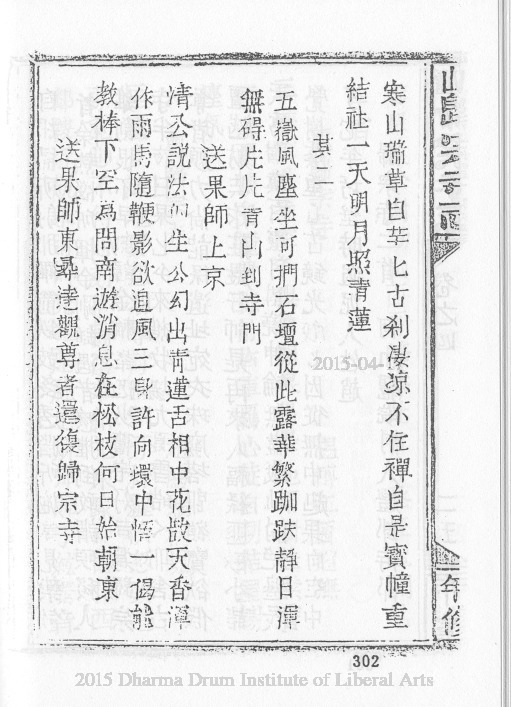 寒山瑞草自芊匕古剎凄凉不住禪自是寶幢重
結社一天明月照青蓮
其二
五嶽風塵坐可捫石壇從此露華繁跏趺靜日渾
無碍片片青山到寺門
送果師上京
清公説法似生公幻出青蓮舌相中花散天香渾
作雨馬隨鞭影欲追風三身許向環中悟一偈能
教棒下空爲問南遊消息在松枝何日始朝東
送果師東尋達觀尊者還復歸宗寺
卷之四
年修
302
2015-04-1
2015 Dharma Drum Institute of Liberal Arts